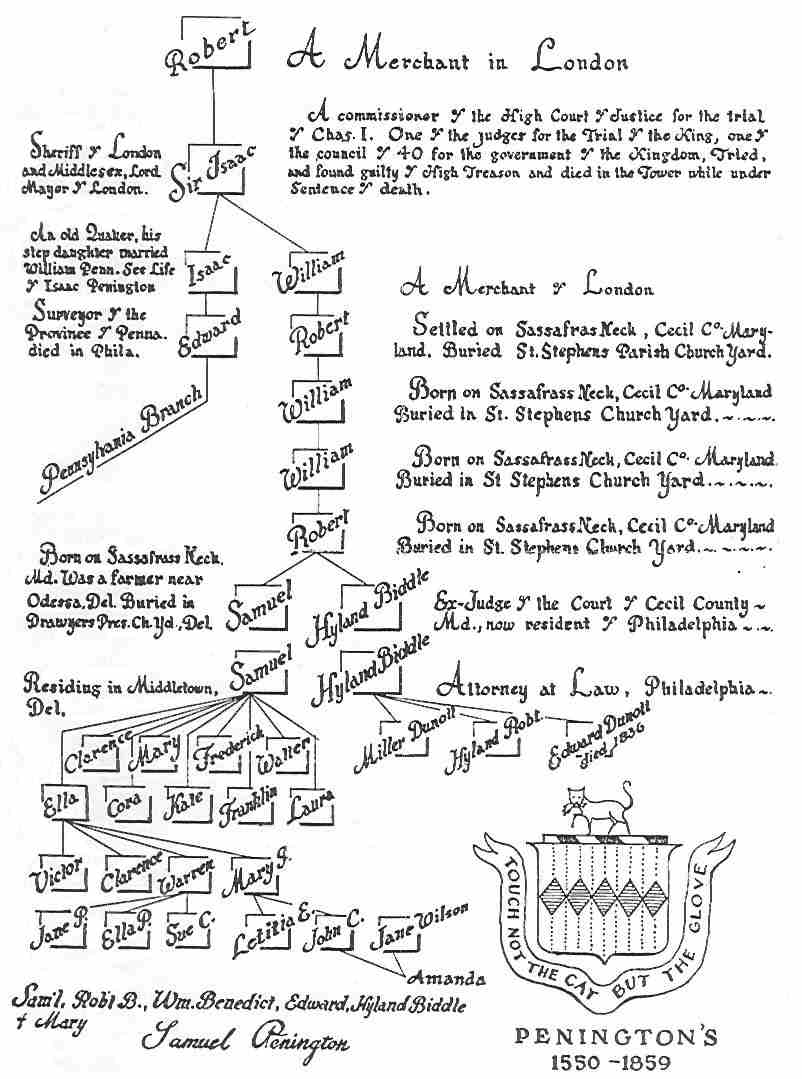 Robert
A Merchant in London
A commissioner of the High Court of Justice for the trial
of Chas. I. One of the judges for the Trial of the King, one of
the council of 40 for the government of the Kingdom, Tried,
and found guilty of High Treason and died in the Tower while under
Sentence of death.
Sheriff of London
and Middlesex, Lord
Mayor of London.
Sir Isaac
An old Quaker, his
step daughter married
William Penn. See Life
of Isaac Penington
Isaac
William
A Merchant of London
Surveyor of the
Province of Penna.
died in Phila.
Edward
Robert
Settled on Sassafras Neck, Cecil Co. Mary-
land. Buried St. Stephens Parish Church Yard.
Pennsylvania Branch
William
Born on Sassafrass Neck, Cecil Co. Maryland
Buried in St. Stephens Church Yard.
William
Born on Sassafrass Neck, Cecil Co. Maryland.
Buried in St Stephens Church Yard.
Robert
Born on Sassafrass Neck, Cecil Co. Maryland
Buried in St. Stephens Church Yard.
Born on Sassafrass Neck,
Md. Was a farmer near
Odessa, Del. Buried in
Drawyers Pres. Ch. Yd., Del.
Samuel
Hyland Biddle
Ex-Judge of the Court of Cecil County ~
Md., now resident of Philadelphia
Residing in Middletown,
Del.
Samuel
Hyland Biddle
Attorney at Law, Philadelphia
Clarence
Mary
Frederick
Walter
Miller Dunott
Hyland Robt.
Edward Dunott
-died 1836
Ella
Cora
Kate
Franklin
Laura
Victor
Clarence
Warren
Mary J.
Jane P.
Ella P.
Sue C.
Letitia E.
John C.
Jane Wilson
Amanda
Sam'l. Rob't B., Wm. Benedict, Edward, Hyland Biddle
+ Mary
Samuel Penington
TOUCH NOT THE CAT BUT THE GLOVE
PENINGTON'S
1550-1859